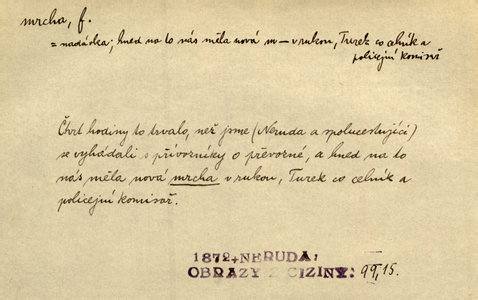 mrcha, f.
= nadávka; hned na to nás měla nová m — v rukou, Turek co celník a
policejní komisař
Čtvrt hodiny to trvalo, než jsme (Neruda a spolucestující)
se vyhádali s přívozníky o převozné, a hned na to
nás měla nová mrcha v rukou, Turek co celník a
policejní komisař.
1872, NERUDA:
OBRAZY Z CIZINY: 99, 15.